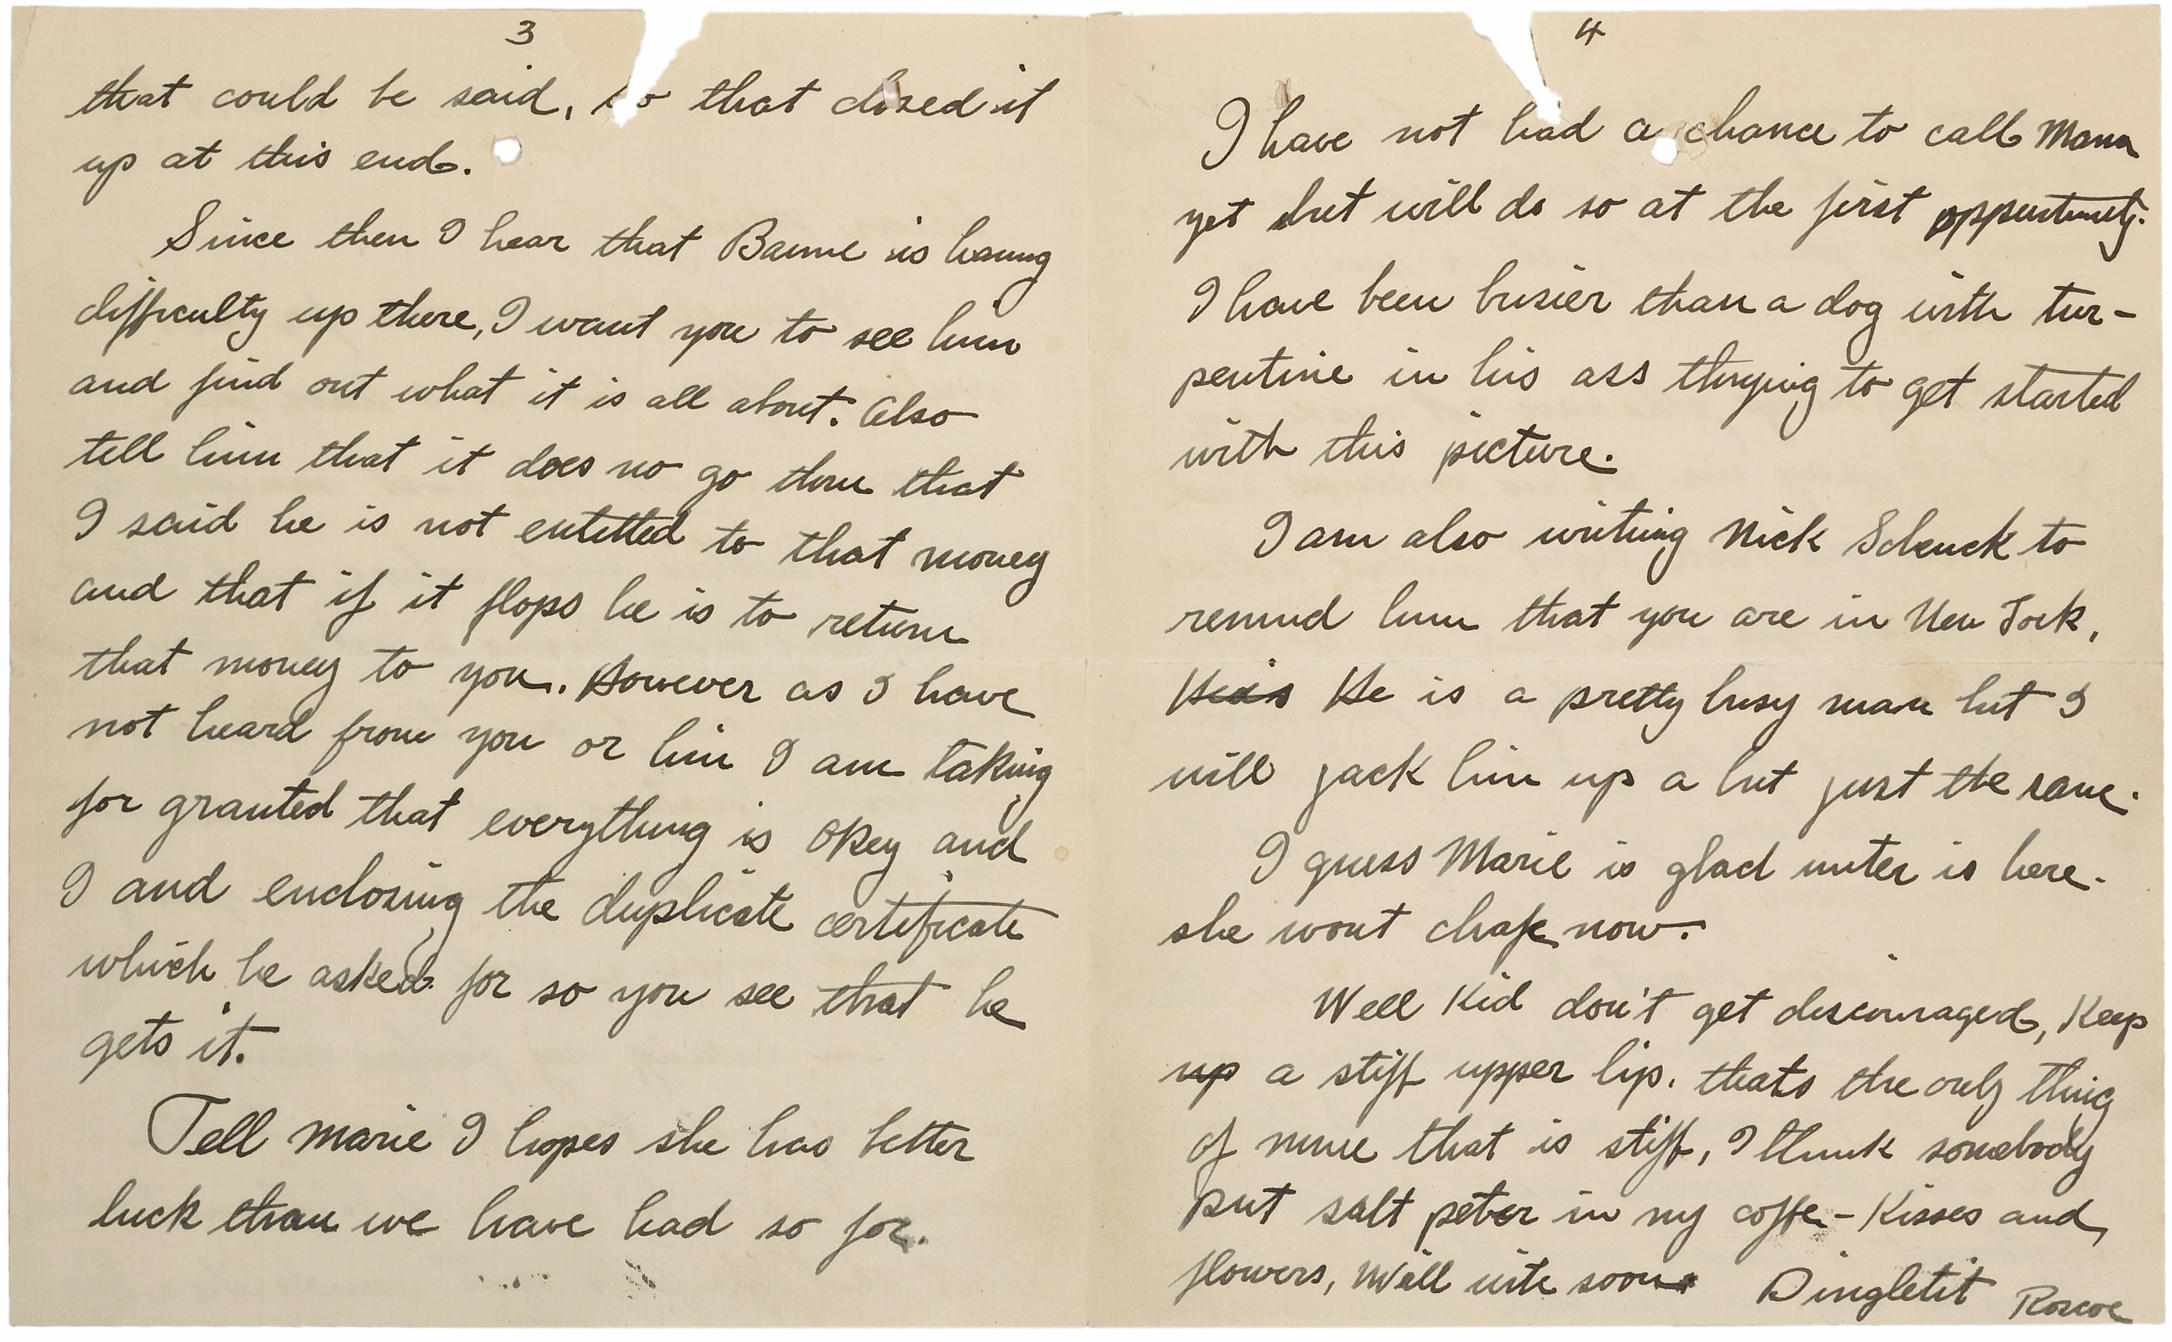 3
that could be said, so that closed it
up at this end.
Since then I hear that Barne is having
difficulty up there, I want you to see him
and find out what it is all about. Also
tell him that it does no go thru that
I said he is not entetted to that money
and that if it flops he is to return
that money to you. However as I have
not heard from you or him I am taking
for granted that everything is Okey and
I and enclosing the duplicate certificate
which he asked for so you see that he
gets it.
Tell Marie I hopes she has better
luck than we have had so for.
4
I have not had a chance to call Mama
yet but will do so at the first oppertunity.
I have been busier than a dog with tur-
pentine in his ass thrying to get started
with this picture.
I am also writing Nick Schenck to
remind him that you are in New York,
He is He is a pretty busy man but I
will jack him up a bit just the same.
I guess Marie is glad winter is here.
she wont chafe now.
Well Kid don't get discouraged, Keep
up a stiff upper lip. thats the only thing
of mine that is stiff, I think somebody
put salt peter in my coffe - Kisses and
flowers, Will write soon Dingletit Roscoe